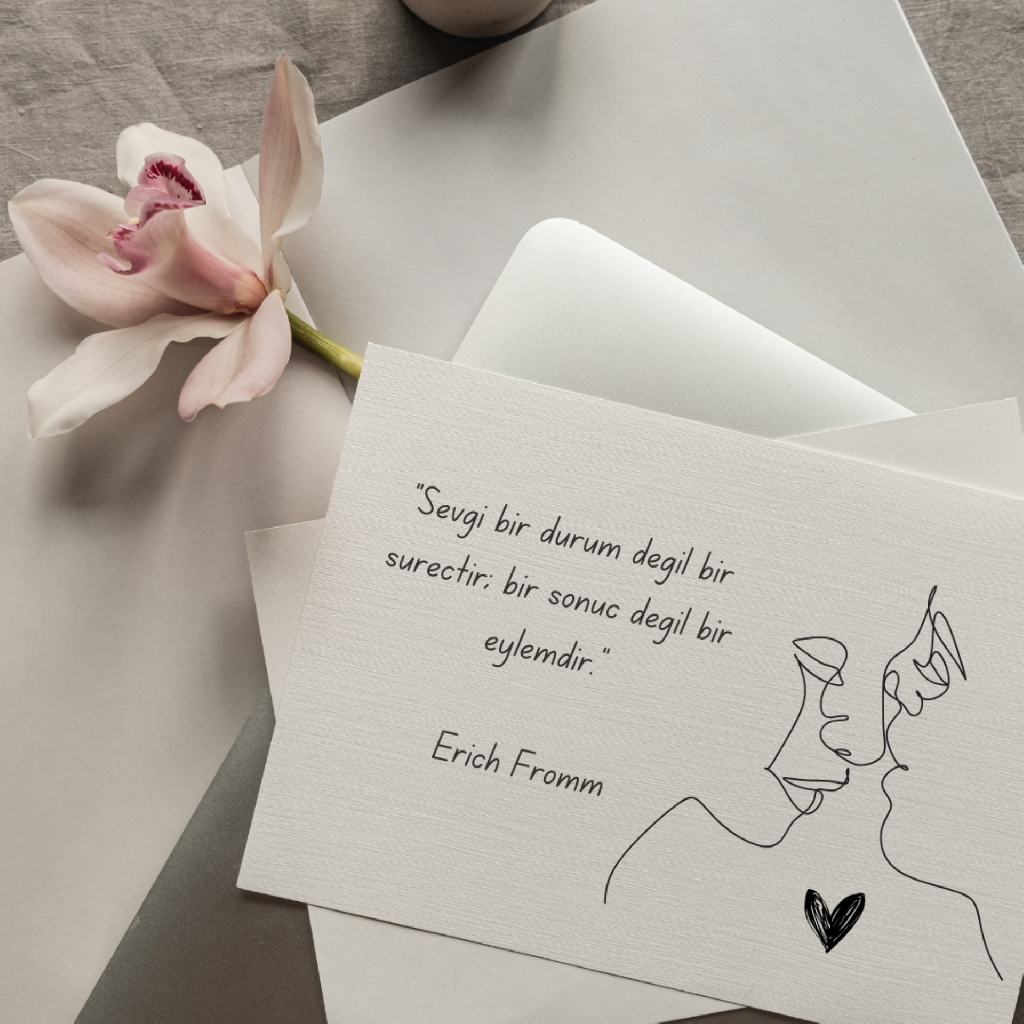 "Sevgi bir durum degil bir
surectir; bir sonuc degil bir
eylemdir."
Erich Fromm